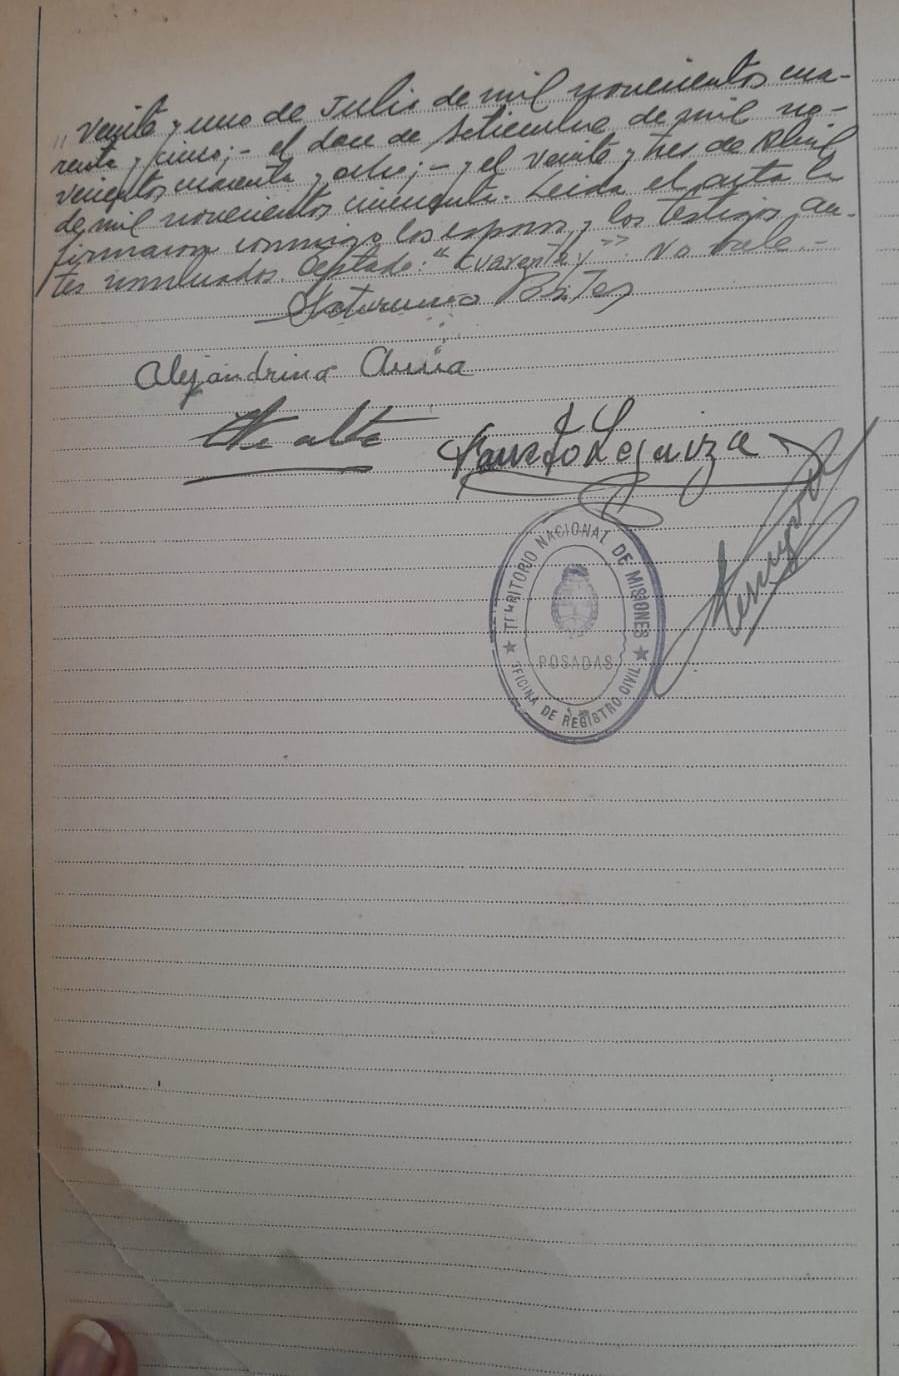 "Veinte y uno de Julio de mil novecientos cua-
renta y cinco;- el doce de Setiembre de mil no-
vecientos cuarenta y ocho;- y el veinte y tres de Abril
de mil novecientos cincuenta. Leida el acta la
firmaron conmigo los esposos y los testigos an-
tes nombrados. "Cuarenta y" No vale.-
Saturnino
Alejandrina
Fausto Leguiza
TERRITORIO NACIONAL DE MISIONES
POSADAS
OFICINA DE REGISTRO CIVIL